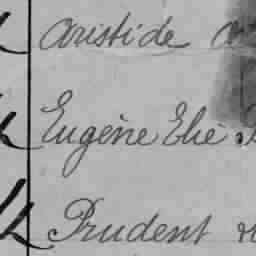 Aristide
Eugène Elie
Prudent